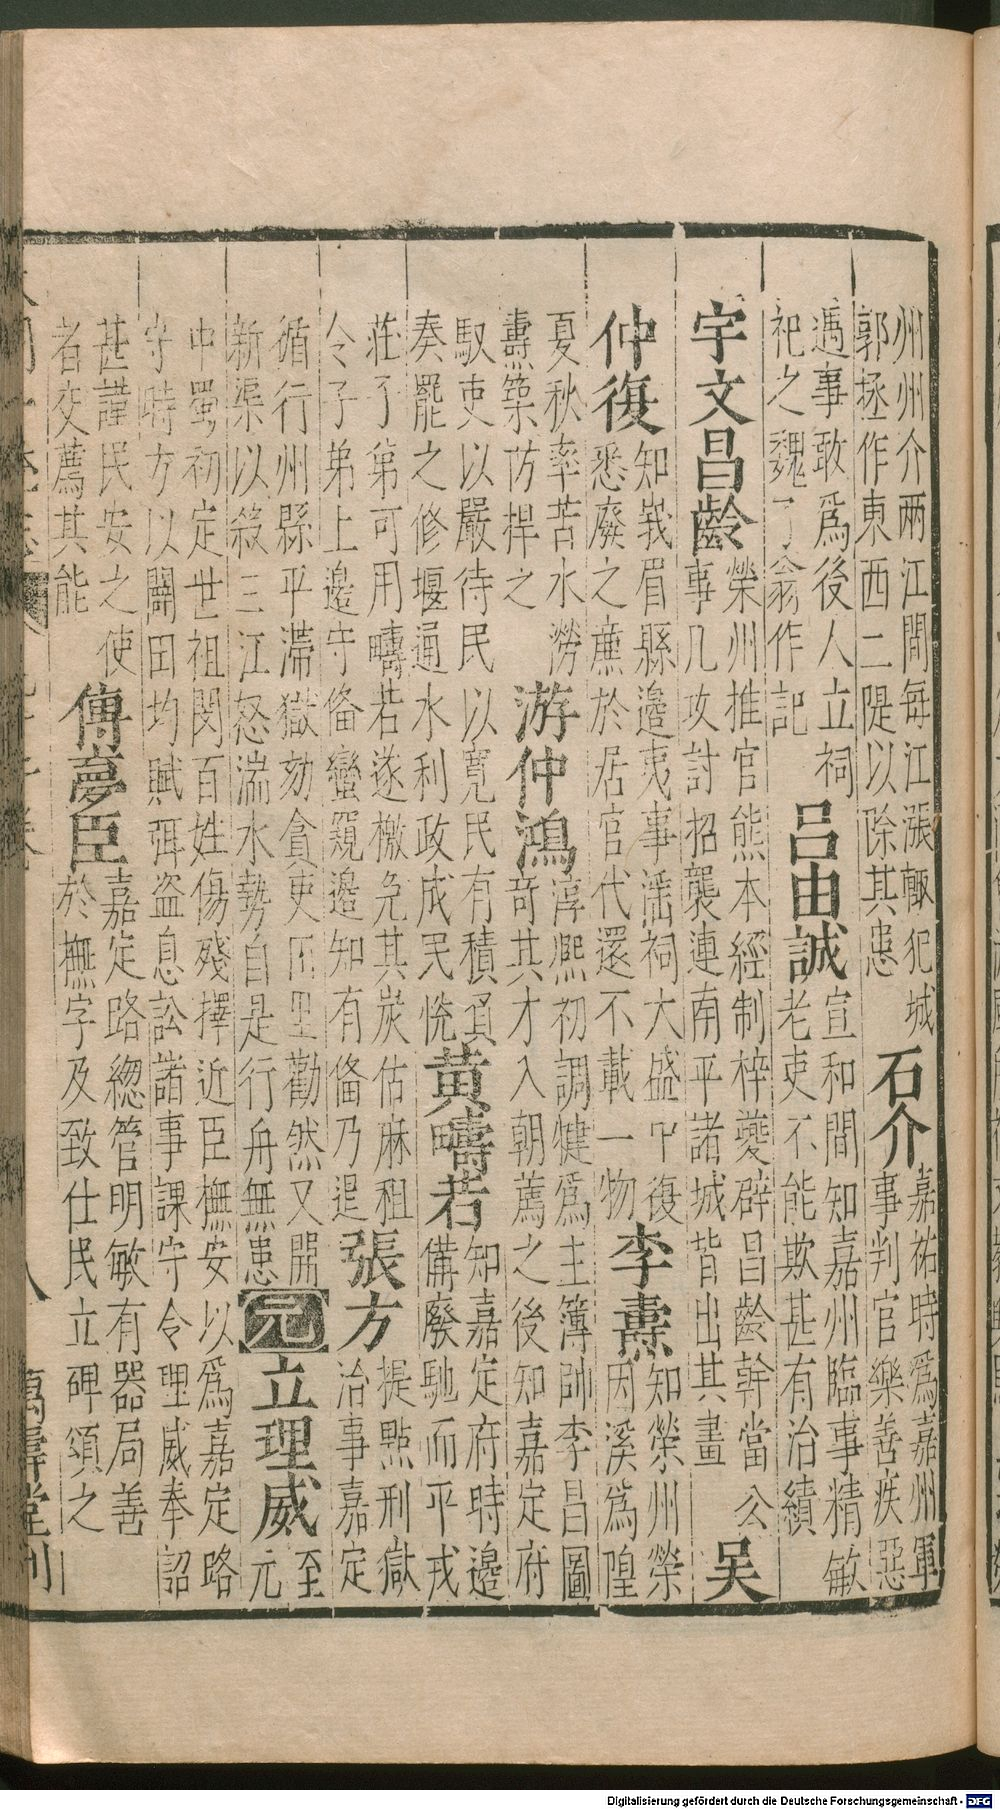 州州介兩江間每江漲輙犯城
郭拯作東西二隄以除其患
石介
嘉祐時爲嘉州軍
事判官樂善疾惡
遇事敢爲後人立祠
祀之魏了翁作記
呂由誠
宣和間知嘉州臨事精敏
老吏不能欺甚有治績
宇文昌齡
榮州推官熊本經制梓夔辟昌齡幹當公
事凡攻討招襲連南平諸城皆出其畫
吴
仲復
知峩眉縣邊夷事滛祠大盛中復
悉廢之㢘於居官代還不載一物
李燾
知榮州榮
因溪爲隍
夏秋率苦水澇
燾築防捍之
游仲鴻
淳熙初調犍爲主簿帥李昌圖
竒其才入朝薦之後知嘉定府
馭吏以嚴待民以寬民有積負
奏罷之修堰通水利政成民恱
黄疇若
知嘉定府時邊
備廢馳而平戎
莊丁第可用疇若遂檄免其炭估麻租
令子弟上邊守俻蠻覘邊知有俻乃退
張方
提點刑獄
治事嘉定
循行州縣平滯獄劾貪吏
勸然又開
新渠以殺三江怒湍水勢自是行舟無患
元
立理威
至
元
中蜀初定世祖閔百姓傷殘擇近臣撫安以爲嘉定路
守時方以闢田均賦弭盗息訟諸事課守令理威奉詔
甚謹民安之使
者交薦其能
傅夢臣
嘉定路緫管明敏有器局善
於撫字及致仕民立碑頌之
八
萬壽堂刋
Digitalisierung gefördert durch die Deutsche Forschungsgemeinschaft - DFG